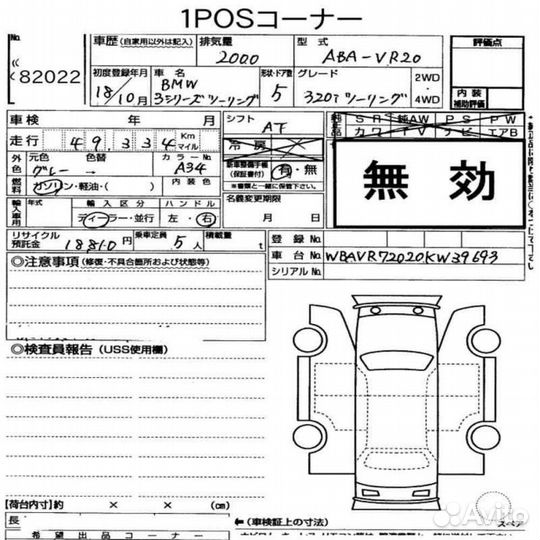 1POSコーナー
No.
82022
車歴 (自家用以外は記入) 排気量 2000
型式 ABA-VR20
評価点
初度登録年月 18/10月
車名 BMW 3シリーズツーリング
形状・ドア数 5
グレード 320iツーリング
2WD・4WD
内装補助評価
車検 年 月
シフト AT
純正品 SR 純AW PS PW
カワ TV ナビ エアB
走行 49,334 Km マイル
冷房
外色 元色 グレー 色替 → カラーNo. A34
整備手帳 (保証書付) 有・無
※書類と一緒に保管下さい。
燃料 ガソリン・軽油・( ) 内装色
無効
輸入車用 年式 輸入区分 ハンドル
ディーラー・並行 左・右
名義変更期限
月 日
リサイクル預託金 18810円 乗車定員 5人 積載量 t
登録No.
車台No. WBAVR72020KW39693
シリアルNo.
◎注意事項 (修復・不具合個所および状態等)
◎検査員報告 (USS使用欄)
【荷台内寸】約 × × (cm)
長
← (車検証上の寸法)
スペア
希望出品コーナー
Avito